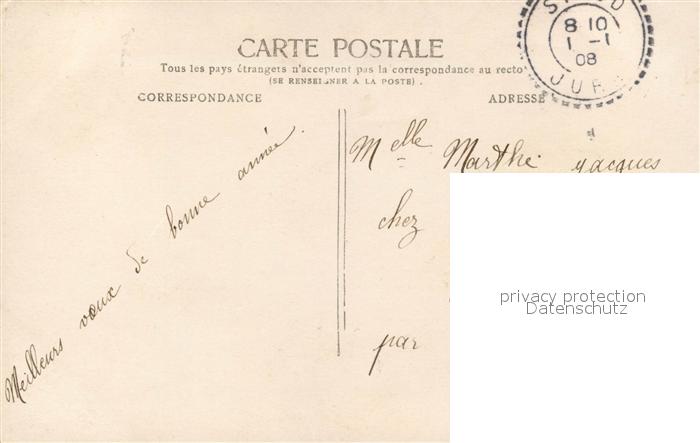 CARTE POSTALE
Tous les pays étrangers n'acceptent pas la correspondance au recto
(SE RENSEIGNER A LA POSTE).
CORRESPONDANCE
ADRESSE
8 10
1 -1
08
JURA
Meilleurs vœux de bonne année.
Melle Marthe Jacques
chez
par
privacy protection
Datenschutz